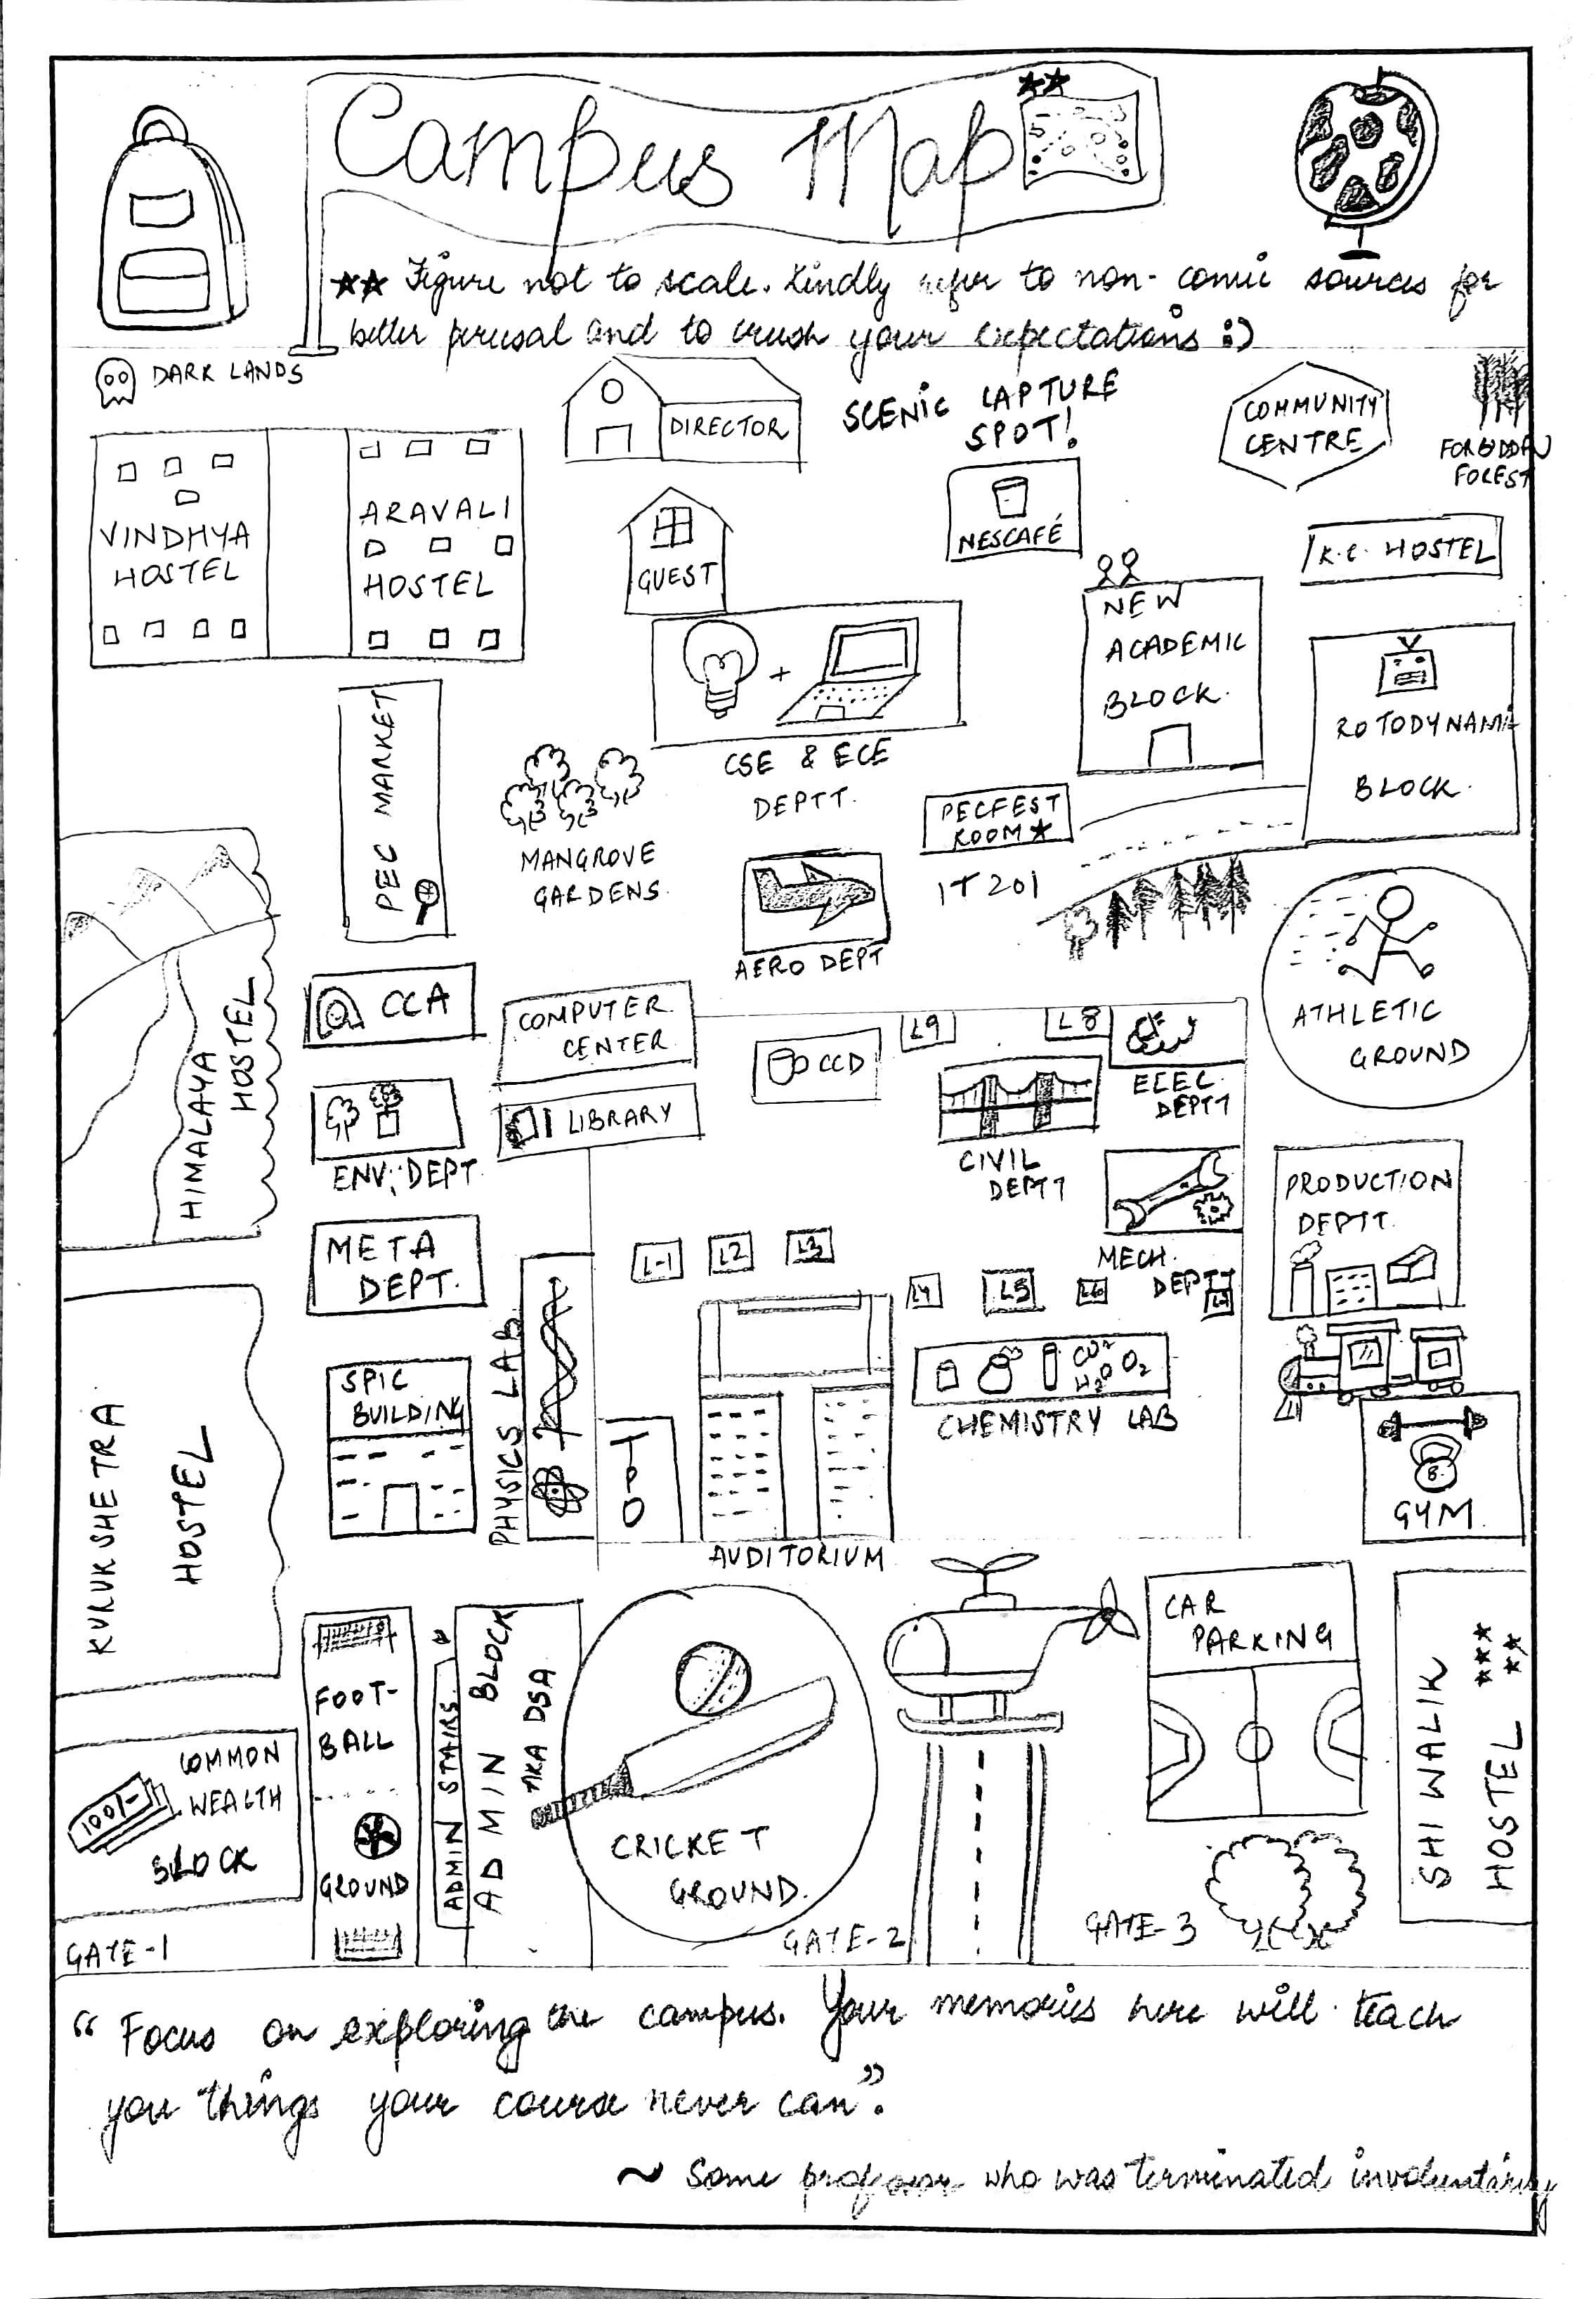 Campus Map
★★
★★ Figure not to scale. Kindly refer to non-comic sources for
better perusal and to crush your expectations :)
DARK LANDS
DIRECTOR
SCENIC CAPTURE
SPOT!
COMMUNITY
CENTRE
FORBIDDEN
FOREST
VINDHYA
HOSTEL
ARAVALI
HOSTEL
GUEST
NESCAFÉ
K.C. HOSTEL
NEW
ACADEMIC
BLOCK.
ROTODYNAMIC
BLOCK.
PEC MARKET
+
CSE & ECE
DEPTT.
MANGROVE
GARDENS.
PECFEST
ROOM★
IT 201
AERO DEPT
ATHLETIC
GROUND
HIMALAYA
HOSTEL
CCA
COMPUTER
CENTER
CCD
L9
L8
ELEC.
DEPTT
ENV. DEPT
LIBRARY
CIVIL
DEPTT
PRODUCTION
DEPTT.
META
DEPT.
L-1
L2
L3
MECH.
DEPTT
L4
L5
L6
L7
SPIC
BUILDING
PHYSICS LAB
TPO
CO2
H2O O2
CHEMISTRY LAB
8
GYM
AUDITORIUM
KURUKSHETRA
HOSTEL
CAR
PARKING
SHIWALIK
HOSTEL ★★★
★★
FOOT-
BALL
GROUND
ADMIN STAIRS
ADMIN BLOCK
AKA DSA
CRICKET
GROUND.
COMMON
WEALTH
BLOCK
100/-
GATE-1
GATE-2
GATE-3
"Focus on exploring the campus. Your memories here will teach
you things your course never can".
~ Some professor who was terminated involuntarily